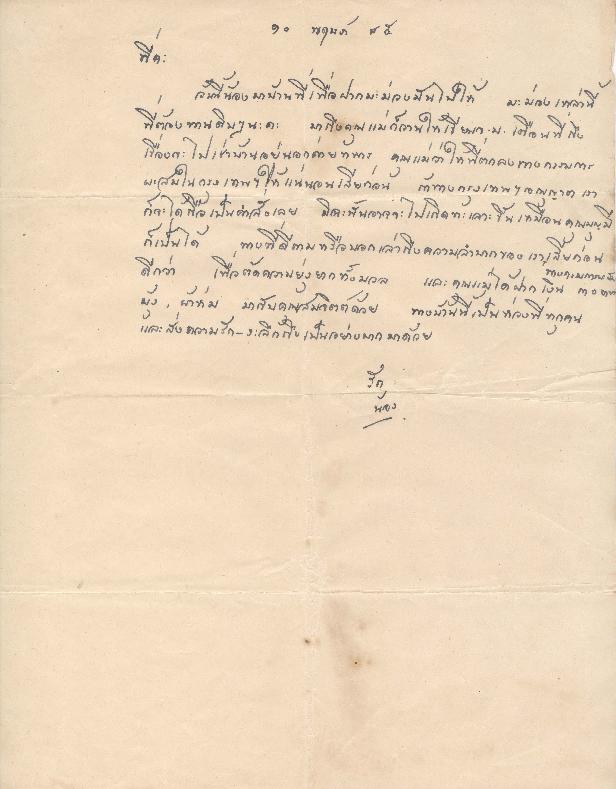 ๑๐ พฤษภา ๘๕
พี่คะ
วันนี้น้องมาบ้านพี่เพื่อฝากมะม่วงมันไปให้ มะม่วงเหล่านี้
พี่ต้องทานดิบๆนะคะ มาถึงคุณแม่ก็วานให้เรียน เตือนพี่ถึง
เรื่องจะไปเช่าบ้านอยู่นอกค่ายทหาร คุณแม่ว่าให้พี่ตกลงทางกรรมการ
ผสมในกรุงเทพฯให้แน่นอนเสียก่อน ถ้าทางกรุงเทพฯอนุญาต เรา
ก็จะได้ถือเป็นคำสั่งเลย มิฉะนั้นอาจจะไปเกิดทะเลาะขึ้นเหมือนคุณ
ก็เป็นได้ ทางที่ดีถามหรือบอกเล่าถึงความลำบากของเราเสียก่อน
ดีกว่า เพื่อตัดความยุ่งยากทั้งมวล และคุณแม่ได้ฝากเงิน
มุ้ง, ผ้าห่ม มากับคุณสมจิตต์ด้วย ทางบ้านนี้เป็นห่วงพี่ทุกคน
และส่งความรัก-ระลึกถึงเป็นอย่างมากมาด้วย
รัก
น้อง